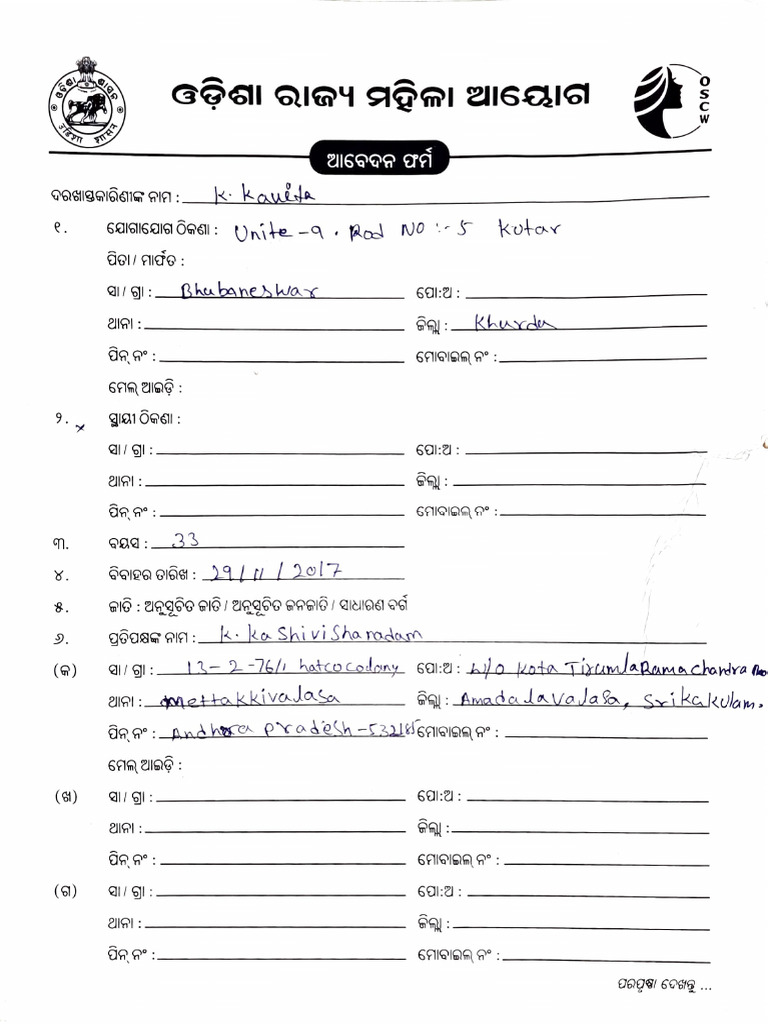 ଓଡ଼ିଶା ରାଜ୍ୟ ମହିଳା ଆୟୋଗ
OSCW
ଆବେଦନ ଫର୍ମ
ଦରଖାସ୍ତକାରିଣୀଙ୍କ ନାମ : K. Kavita
୧. ଯୋଗାଯୋଗ ଠିକଣା : Unite-9. Rod NO :- 5 Kotar
ପିତା / ମାର୍ଫତ :
ସା / ଗ୍ରା : Bhubaneswar ପୋ:ଅ :
ଥାନା : ଜିଲ୍ଲା : Khurda
ପିନ୍ ନଂ : ମୋବାଇଲ୍ ନଂ :
ମେଲ୍ ଆଇଡ଼ି :
୨. ସ୍ଥାୟୀ ଠିକଣା :
ସା / ଗ୍ରା : ପୋ:ଅ :
ଥାନା : ଜିଲ୍ଲା :
ପିନ୍ ନଂ : ମୋବାଇଲ୍ ନଂ :
୩. ବୟସ : 33
୪. ବିବାହର ତାରିଖ : 29/11/2017
୫. ଜାତି : ଅନୁସୂଚିତ ଜାତି / ଅନୁସୂଚିତ ଜନଜାତି / ସାଧାରଣ ବର୍ଗ
୬. ପ୍ରତିପକ୍ଷଙ୍କ ନାମ : K. Kashivisharadam
(କ) ସା / ଗ୍ରା : 13-2-76/1 hatcocodony ପୋ:ଅ : h/o Kota TirumlaRamachandra
ଥାନା : mettakkivalasa ଜିଲ୍ଲା : Amadalavalasa, Srikakulam.
ପିନ୍ ନଂ : Andhra pradesh-532185 ମୋବାଇଲ୍ ନଂ :
ମେଲ୍ ଆଇଡ଼ି :
(ଖ) ସା / ଗ୍ରା : ପୋ:ଅ :
ଥାନା : ଜିଲ୍ଲା :
ପିନ୍ ନଂ : ମୋବାଇଲ୍ ନଂ :
(ଗ) ସା / ଗ୍ରା : ପୋ:ଅ :
ଥାନା : ଜିଲ୍ଲା :
ପିନ୍ ନଂ : ମୋବାଇଲ୍ ନଂ :
ପରପୃଷ୍ଠା ଦେଖନ୍ତୁ ...